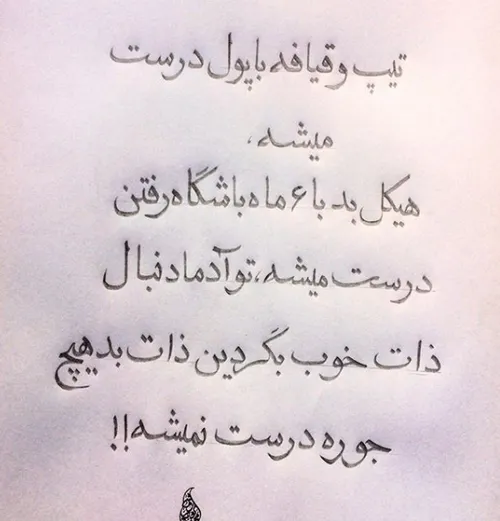 تیپ و قیافه با پول درست
میشه،
هیکل بد با ۶ ماه باشگاه رفتن
درست میشه، تو آدما دنبال
ذات خوب بگردین ذات بد هیچ
جوره درست نمیشه!!